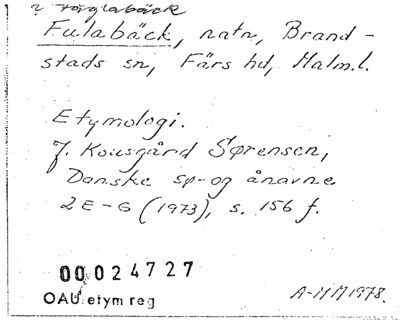 i Fåglabäck
Fulabäck, natn, Brand-
stads sn, Färs hd, Malm.l.
Etymologi.
J. Kousgård Sørensen,
Danske sø- og ånavne
2 E-G (1973), s. 156 f.
00024727
OAU etym reg
A-MM 1978.